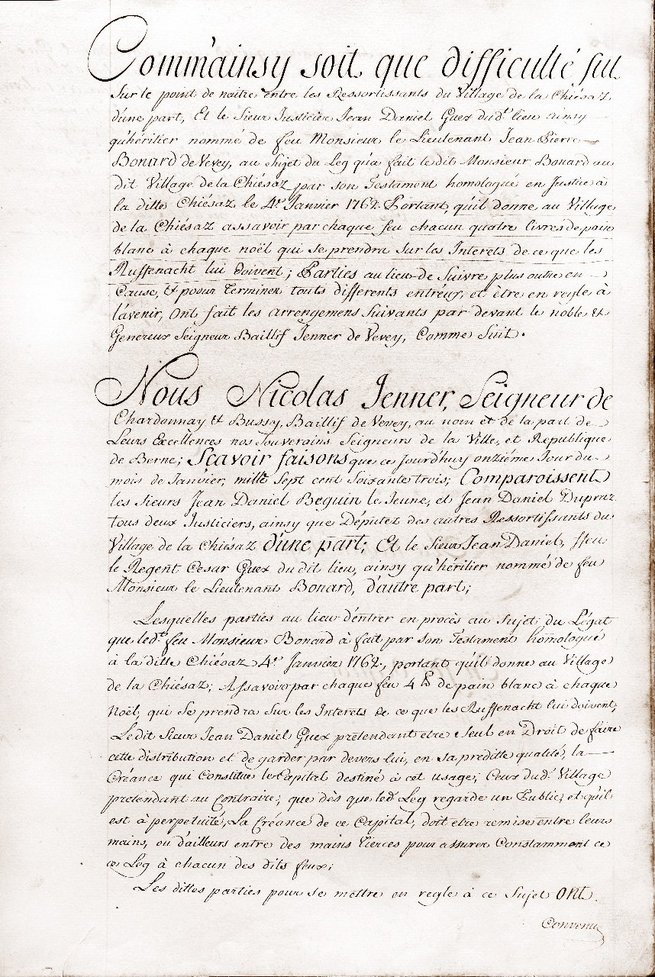 Comm'ainsy soit que difficulté fut
Sur le point de naitre entre les Ressortissants du Village de la Chiésaz,
d'une part, Et le Sieur Justicier Jean Daniel Guex du dt. lieu ainsy
qu'héritier nommé de feu Monsieur le Lieutenant Jean Pierre
Bonard de Vevey, au Sujet du Leg qu'a fait le dit Monsieur Bonard au
dit Village de la Chiésaz par son Testament homologué en Justice à
la ditte Chiésaz le 4e. Janvier 1762. Portant, qu'il donne au Village
de la Chiésaz assavoir par chaque feu chacun quatre livres de pain
blanc à chaque noël qui se prendra Sur les Interets de ce que les
Ruffenacht lui doivent; Parties au lieu de Suivre plus outre en
Cause, Et pour Terminer touts differents entr'eux, et être en regle à
l'avenir, Ont fait les arrangemens Suivants par devant le noble Et
Genereux Seigneur Baillif Jenner de Vevey, Comme Suit.
Nous Nicolas Jenner, Seigneur de
Chardonnay Et Bussy, Baillif de Vevey, au nom et de la part de
Leurs Excellences nos Souverains Seigneurs de la Ville, et Republique
de Berne; Sçavoir faisons que ce Jourd'huy onziéme Jour du
mois de Janvier, mille Sept cent Soixante trois; Comparoissent
les Sieurs Jean Daniel Beguin le Jeune, et Jean Daniel Dupraz
tous deux Justiciers, ainsy que Députez des autres Ressortissants du
Village de la Chiésaz d'une part; Et le Sieur Jean Daniel, ffeu
le Regent Cesar Guex du dit lieu, ainsy qu'héritier nommé de feu
Monsieur le Lieutenant Bonard, d'autre part;
Lesquelles parties au lieu d'entrer en procès au Sujet du Légat
que ledt. feu Monsieur Bonard à fait par son Testament homologué
à la ditte Chiésaz 4e. Janvier 1762, portant qu'il donne au Village
de la Chiésaz; Assavoir par chaque feu 4 lb de pain blanc à chaque
Noël, qui se prendra Sur les Interets de ce que les Ruffenacht lui doivent;
Le dit Sieur Jean Daniel Guex prétendant etre Seul en Droit de faire
cette distribution et de garder par devers lui, en sa preditte qualité, la
Créance qui Constitue le Capital destiné à cet usage; Ceux du dt. Village
pretendant au Contraire; que dès que ledt. Leg regarde un Public, et qu'il
est à perpetuité, La Créance de ce Capital, doit etre remise entre leurs
mains, ou d'ailleurs entre des mains tierces pour assurer Constamment ce
ce Leg à chacun des dits feux;
Les dittes parties pour se mettre en regle à ce Sujet Ont
Convenu